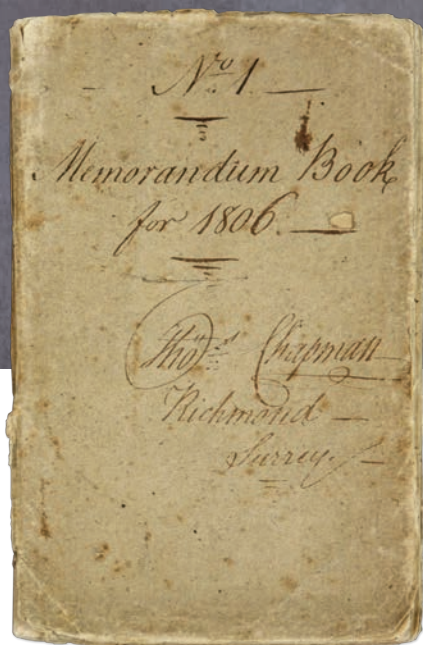 No. 1
Memorandum Book
for 1806.
Thos. Chapman
Richmond
Surrey.